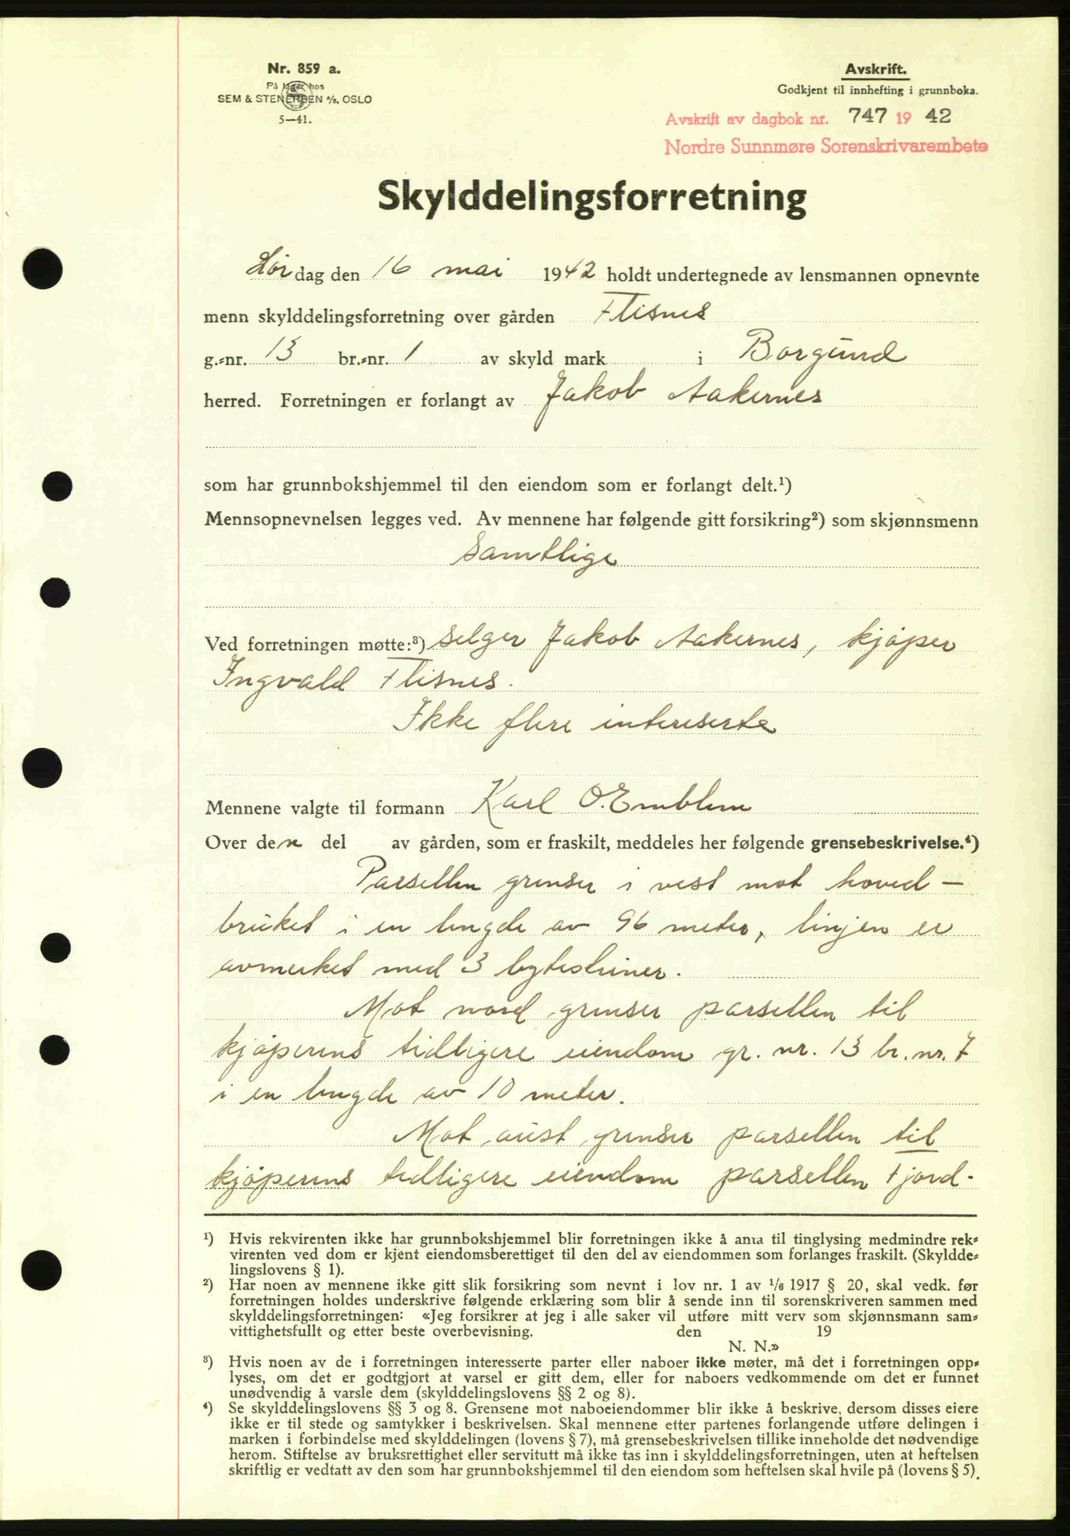 Nr. 859 a.
På lager hos
SEM & STENERSEN A/S, OSLO
5—41.
Avskrift.
Godkjent til innhefting i grunnboka.
Avskrift av dagbok nr. 747 19 42
Nordre Sunnmøre Sorenskrivarembete
Skylddelingsforretning
Lørdag den 16 mai 1942 holdt undertegnede av lensmannen opnevnte
menn skylddelingsforretning over gården Flisnes
g.-nr. 13 br.-nr. 1 av skyld mark i Borgund
herred. Forretningen er forlangt av Jakob Aakernes
som har grunnbokshjemmel til den eiendom som er forlangt delt.¹)
Mennsopnevnelsen legges ved. Av mennene har følgende gitt forsikring²) som skjønnsmenn
Samtlige
Ved forretningen møtte:³) Selger Jakob Aakernes, kjøper
Ingvald Flisnes.
Ikke flere intereserte
Mennene valgte til formann Karl O. Emblem
Over den del av gården, som er fraskilt, meddeles her følgende grensebeskrivelse.⁴)
Parsellen grenser i vest mot hoved-
bruket i en lengde av 96 meter, linjen er
avmerket med 3 bytesteiner.
Mot nord grenser parsellen til
kjøperens tidligere eiendom gr. nr. 13 br. nr. 7
i en lengde av 10 meter.
Mot aust grenser parsellen til
kjøperens tidligere eiendom parsellen Fjord-
¹) Hvis rekvirenten ikke har grunnbokshjemmel blir forretningen ikke å anta til tinglysing medmindre rek-
virenten ved dom er kjent eiendomsberettiget til den del av eiendommen som forlanges fraskilt. (Skyldde-
lingslovens § 1).
²) Har noen av mennene ikke gitt slik forsikring som nevnt i lov nr. 1 av 1/6 1917 § 20, skal vedk. før
forretningen holdes underskrive følgende erklæring som blir å sende inn til sorenskriveren sammen med
skylddelingsforretningen: «Jeg forsikrer at jeg i alle saker vil utføre mitt verv som skjønnsmann sam-
vittighetsfullt og etter beste overbevisning. den 19
N. N.»
³) Hvis noen av de i forretningen interesserte parter eller naboer ikke møter, må det i forretningen opp-
lyses, om det er godtgjort at varsel er gitt dem, eller for naboers vedkommende om det er funnet
unødvendig å varsle dem (skylddelingslovens §§ 2 og 8).
⁴) Se skylddelingslovens §§ 3 og 8. Grensene mot naboeiendommer blir ikke å beskrive, dersom disses eiere
ikke er til stede og samtykker i beskrivelsen. Skal mennene etter partenes forlangende utføre delingen i
marken i forbindelse med skylddelingen (lovens § 7), må grensebeskrivelsen tillike inneholde det nødvendige
herom. Stiftelse av bruksrettighet eller servitutt må ikke tas inn i skylddelingsforretningen, uten at heftelsen
skriftlig er vedtatt av den som har grunnbokshjemmel til den eiendom som heftelsen skal hvile på (lovens § 5).